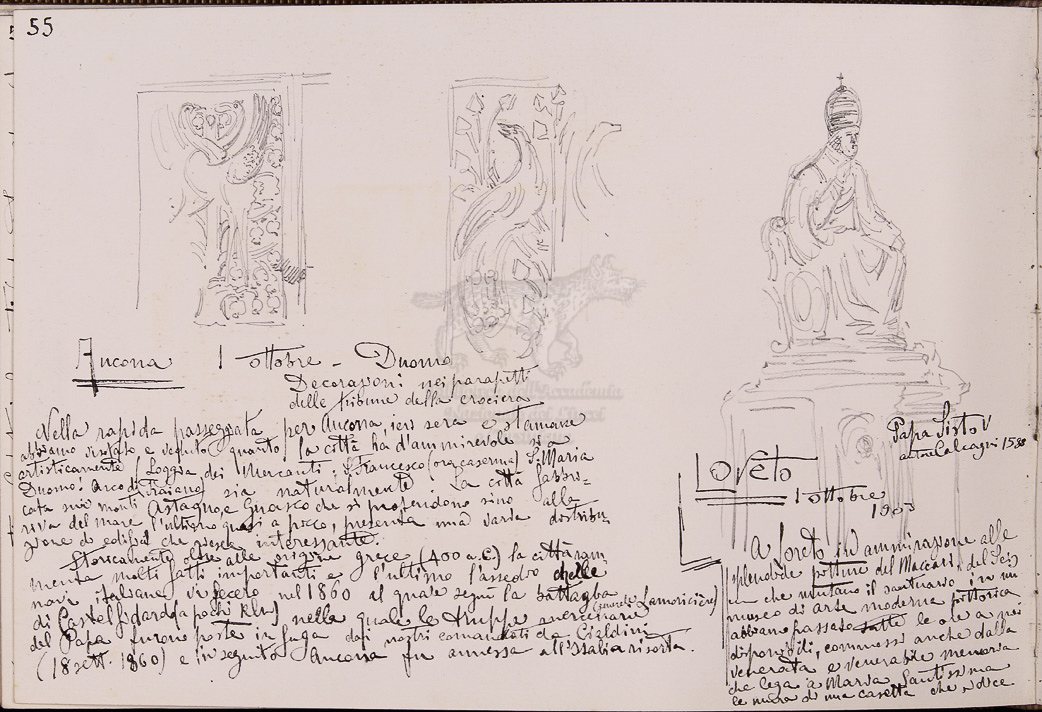 55
Ancona 1 ottobre - Duomo
Decorazioni nei parapetti
delle tribune della crociera
Nella rapida passeggiata per Ancona, ieri sera e stamane
abbiamo visitato e veduto quanto la città ha d'ammirevole sia
artisticamente (Loggia dei Mercanti: S. Francesco (ora caserma) S. Maria
Duomo: Arco di Traiano) sia naturalmente. La città fabbri=
cata sui monti Astagno, e Guasco che si protendono sino alla
riva del mare, l'ultimo quasi a picco, presenta una varia distribu=
zione di edifici che riesce interessante.
Storicamente oltre alle origini greche (400 a.C) la città ram
menta molti fatti importanti e l'ultimo l'assedio che le
navi italiane vi fecero nel 1860 al quale seguì la battaglia
di Castelfidardo (a pochi klm) nella quale le truppe mercenarie
del Papa (generale Lamoricière) furono poste in fuga dai nostri comandati da Cialdini
(18 sett. 1860) e in seguito Ancona fu annessa all'Italia risorta.
Papa Sisto V
autore Calcagni 1588
Loreto
1 ottobre
A Loreto in ammirazione alle
splendide pitture del Maccari, del Seiz
che mutano il santuario in un
museo di arte moderna pittorica
abbiamo passato tutte le ore a noi
disponibili, commossi anche dalla
venerata e venerabile memoria
che lega a Maria Santissima
le mura di una casetta che si dice